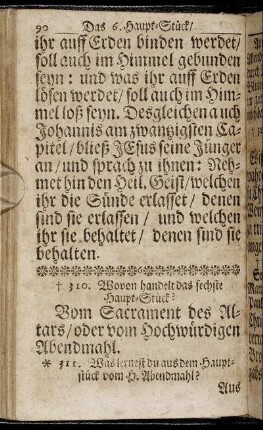 90 Das 6. Haupt-Stück/
ihr auff Erden binden werdet/
soll auch im Himmel gebunden
seyn: und was ihr auff Erden
lösen werdet/ soll auch im Him-
mel loß seyn. Desgleichen auch
Johannis am zwanzigsten Ca-
pitel/ bließ JEsus seine Jünger
an/ und sprach zu ihnen: Neh-
met hin den Heil. Geist/ welchen
ihr die Sünde erlasset/ denen
sind sie erlassen/ und welchen
ihr sie behaltet/ denen sind sie
behalten.
† 310. Wovon handelt das sechste
Haupt-Stück?
Vom Sacrament des Al-
tars/ oder vom Hochwürdigen
Abendmahl.
* 311. Was lernest du aus dem Haupt-
stück vom H. Abendmahl?
Aus